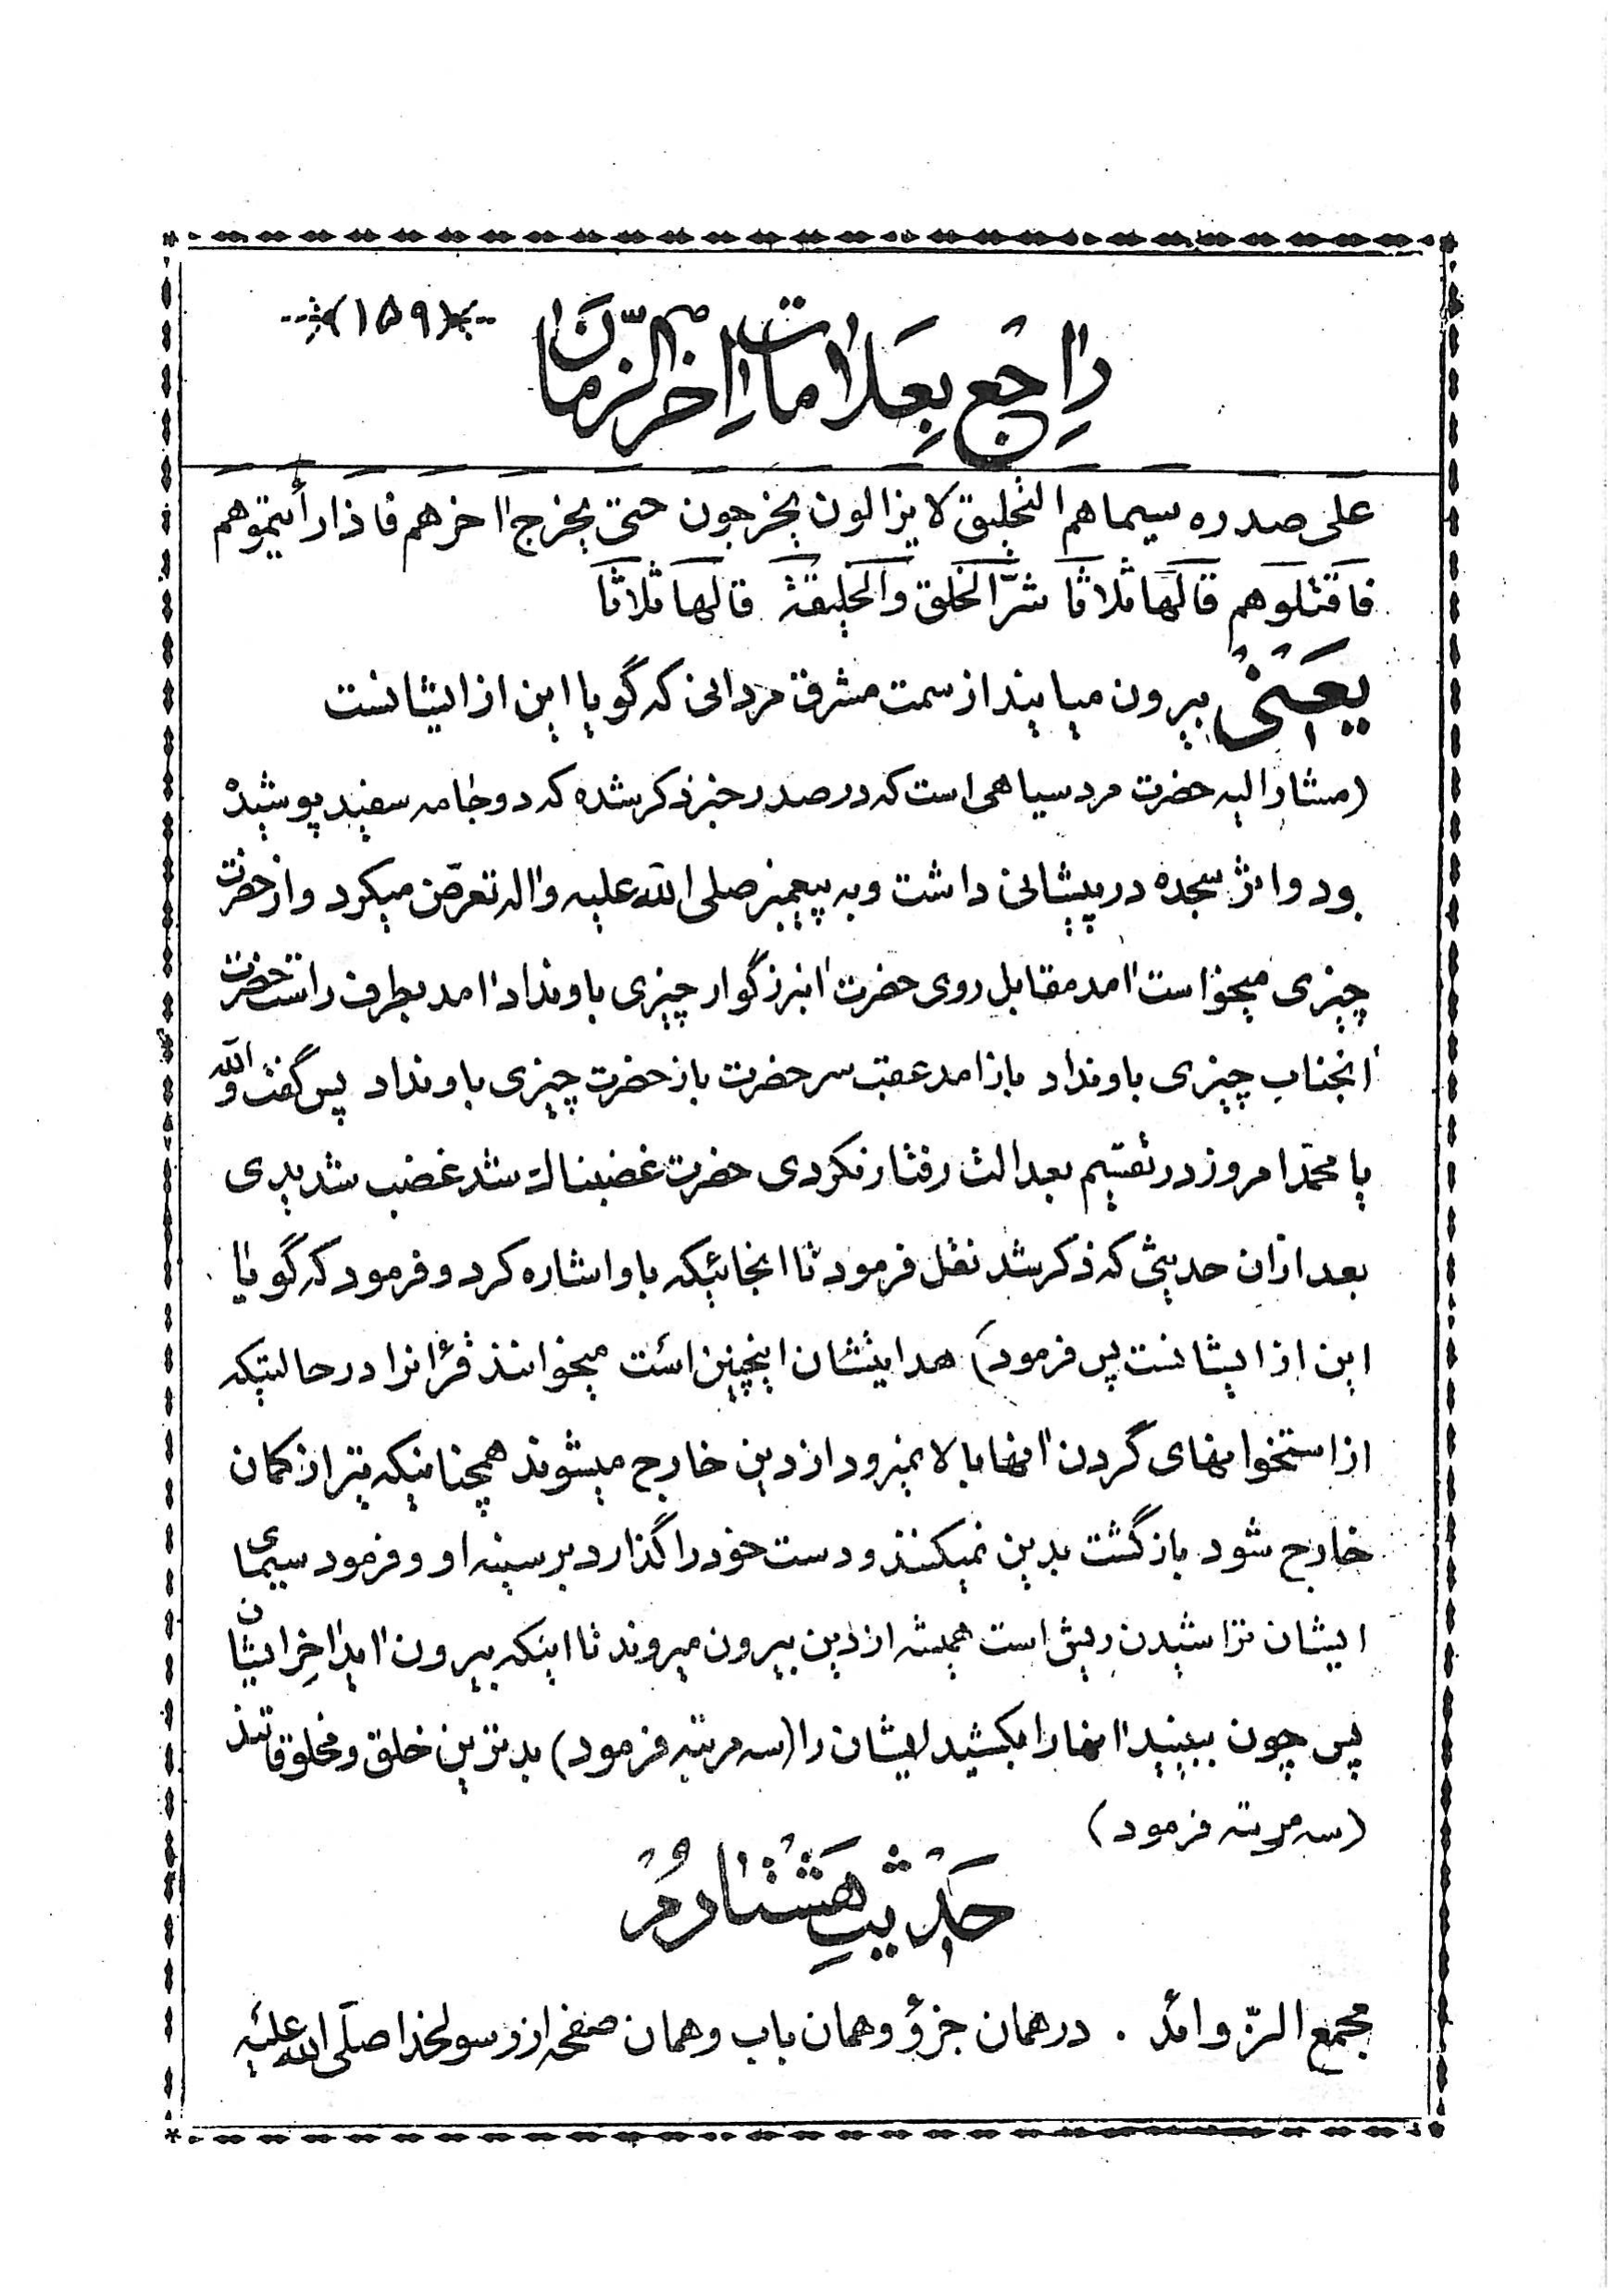 (۱۵۹)
راجع بعلامات اخر الزمان
على صدره سيماهم التحليق لا يزالون يخرجون حتى يخرج اخرهم فاذا رأيتموهم
فاقتلوهم قالها ثلاثا شرّ الخلق والخليقة قالها ثلاثا
یعنی بیرون میایند از سمت مشرق مردانی که گویا این از ایشانست
(مشار الیه حضرت مرد سیاهی است که در صدر خبر ذکر شده که دو جامه سفید پوشیده
بود و اثر سجده در پیشانی داشت و به پیغمبر صلی الله علیه و اله تعرّض میکرد و از حضرت
چیزی میخواست امد مقابل روی حضرت انبزرگوار چیزی باو نداد امد بطرف راست حضرت
انجناب چیزی باو نداد باز امد عقب سر حضرت باز حضرت چیزی باو نداد پس گفت والله
یا محمّد امروز در تقسیم بعدالت رفتار نکردی حضرت غضبناک شد غضب شدیدی
بعد ازان حدیثی که ذکر شد نقل فرمود تا انجائیکه باو اشاره کرد و فرمود که گویا
این از ایشانست پس فرمود) هدایتشان اینچنین است میخوانند قرانرا در حالتیکه
از استخوانهای گردن انها بالا نمیرود از دین خارج میشوند همچنانیکه تیر از کمان
خارج شود بازگشت بدین نمیکنند و دست خود را گذارد بر سینه او و فرمود سیمای
ایشان تراشیدن ریش است همیشه از دین بیرون میروند تا اینکه بیرون اید اخر ایشان
پس چون ببینید انها را بکشید ایشان را (سه مرتبه فرمود) بدترین خلق و مخلوقاتند
(سه مرتبه فرمود)
حدیث هشتادم
مجمع الزّوائد . در همان جزؤ و همان باب و همان صفحه از رسولخدا صلّی الله علیه